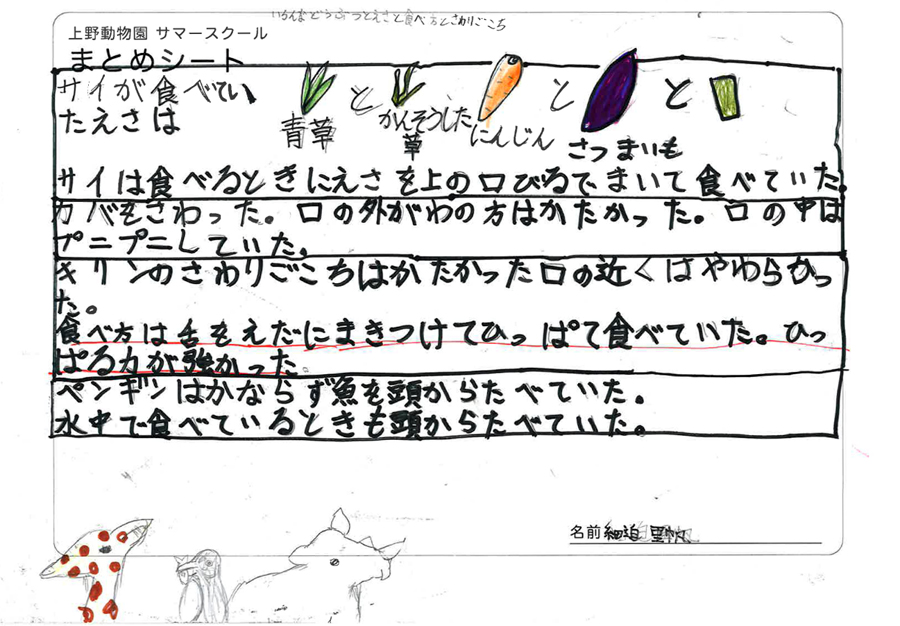 いろんなどうぶつとえさと食べ方とさわりごこち
上野動物園 サマースクール
まとめシート
サイが食べてい
たえさは
青草
と
かんそうした
草
にんじん
と
さつまいも
と
サイは食べるときにえさを上の口びるでまいて食べていた。
カバをさわった。口の外がわの方はかたかった。口の中は
プニプニしていた。
キリンのさわりごこちはかたかった口の近くはやわらかっ
た。
食べ方は舌をえだにまきつけてひっぱて食べていた。ひっ
ぱる力が強かった
ペンギンはかならず魚を頭からたべていた。
水中で食べているときも頭からたべていた。
名前 細迫